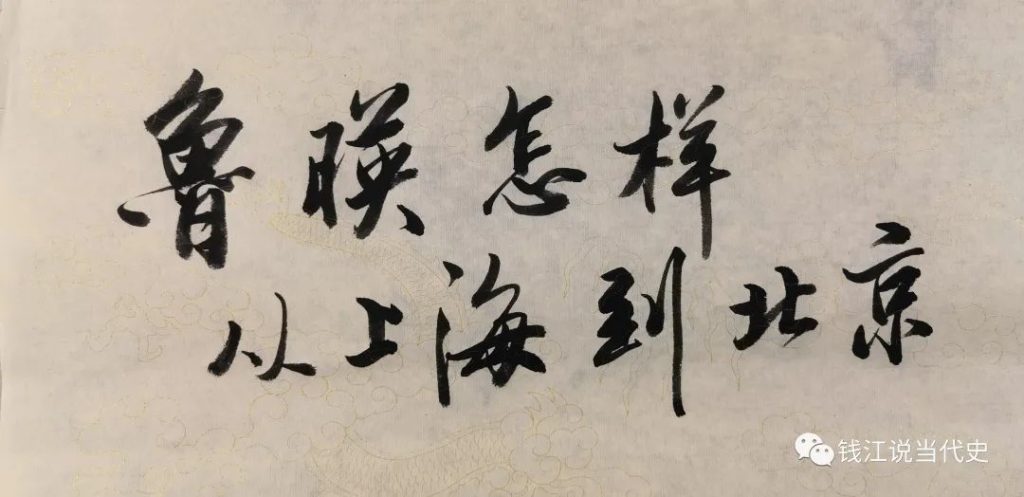 鲁暎怎样
从上海到北京
钱江说当代史